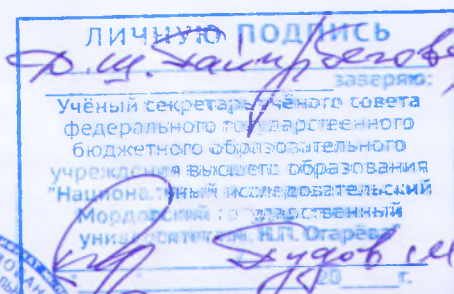 ЛИЧНУЮ ПОДПИСЬ
Д.Ш.
заверяю:
Учёный секретарь учёного совета
федерального государственного
бюджетного образовательного
учреждения высшего образования
"Национальный исследовательский
Мордовский государственный
университет им. Н.П. Огарёва"
20 г.